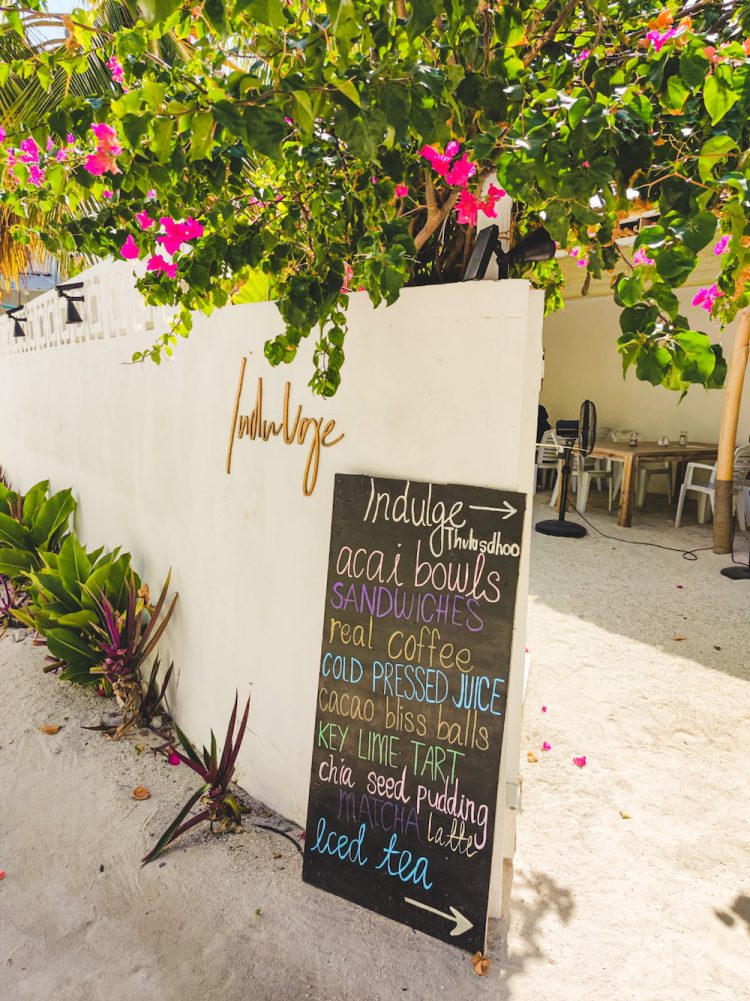 Indulge
Indulge
Thulusdhoo
acai bowls
SANDWICHES
real coffee
COLD PRESSED JUICE
cacao bliss balls
KEY LIME TART
chia seed pudding
MATCHA latte
Iced tea